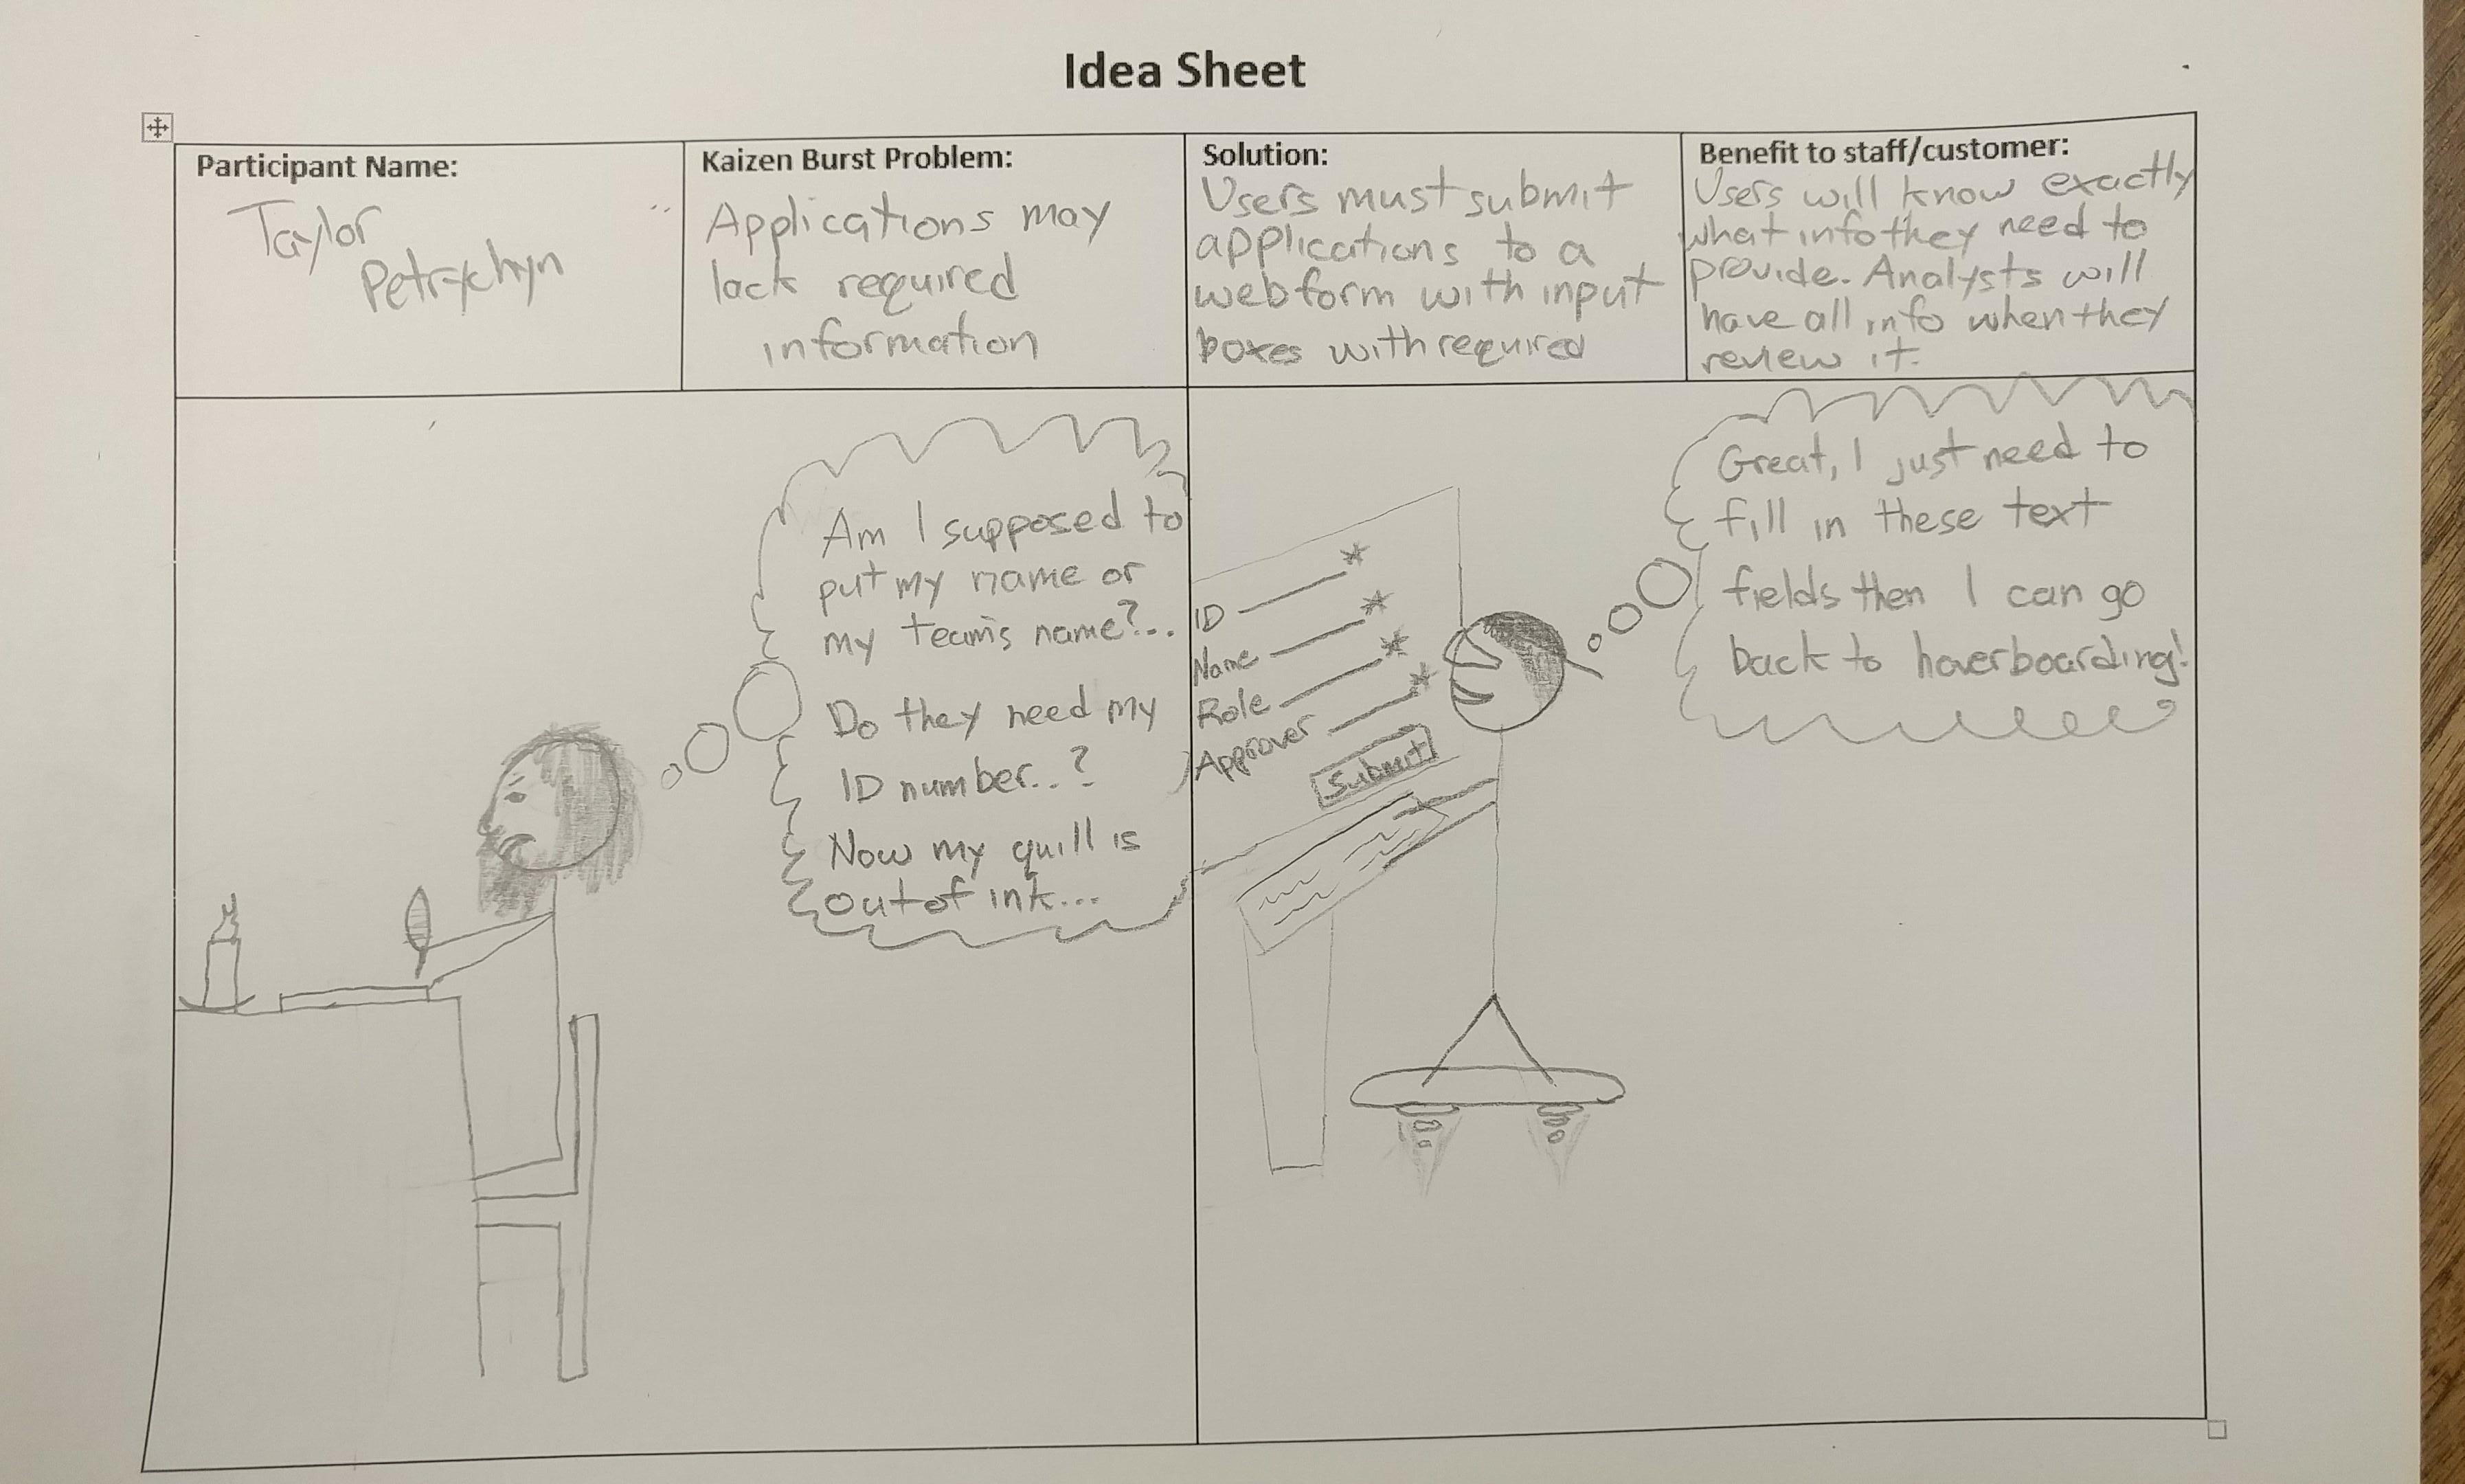 Idea Sheet
Participant Name:
Taylor
Petrychyn
Kaizen Burst Problem:
Applications may
lack required
information
Solution:
Users must submit
applications to a
webform with input
boxes with required
Benefit to staff/customer:
Users will know exactly
what info they need to
provide. Analysts will
have all info when they
review it.
Am I supposed to
put my name or
my team's name?...
Do they need my
ID number..?
Now my quill is
out of ink...
ID *
Name *
Role *
Approver *
Submit
Great, I just need to
fill in these text
fields then I can go
back to hoverboarding!